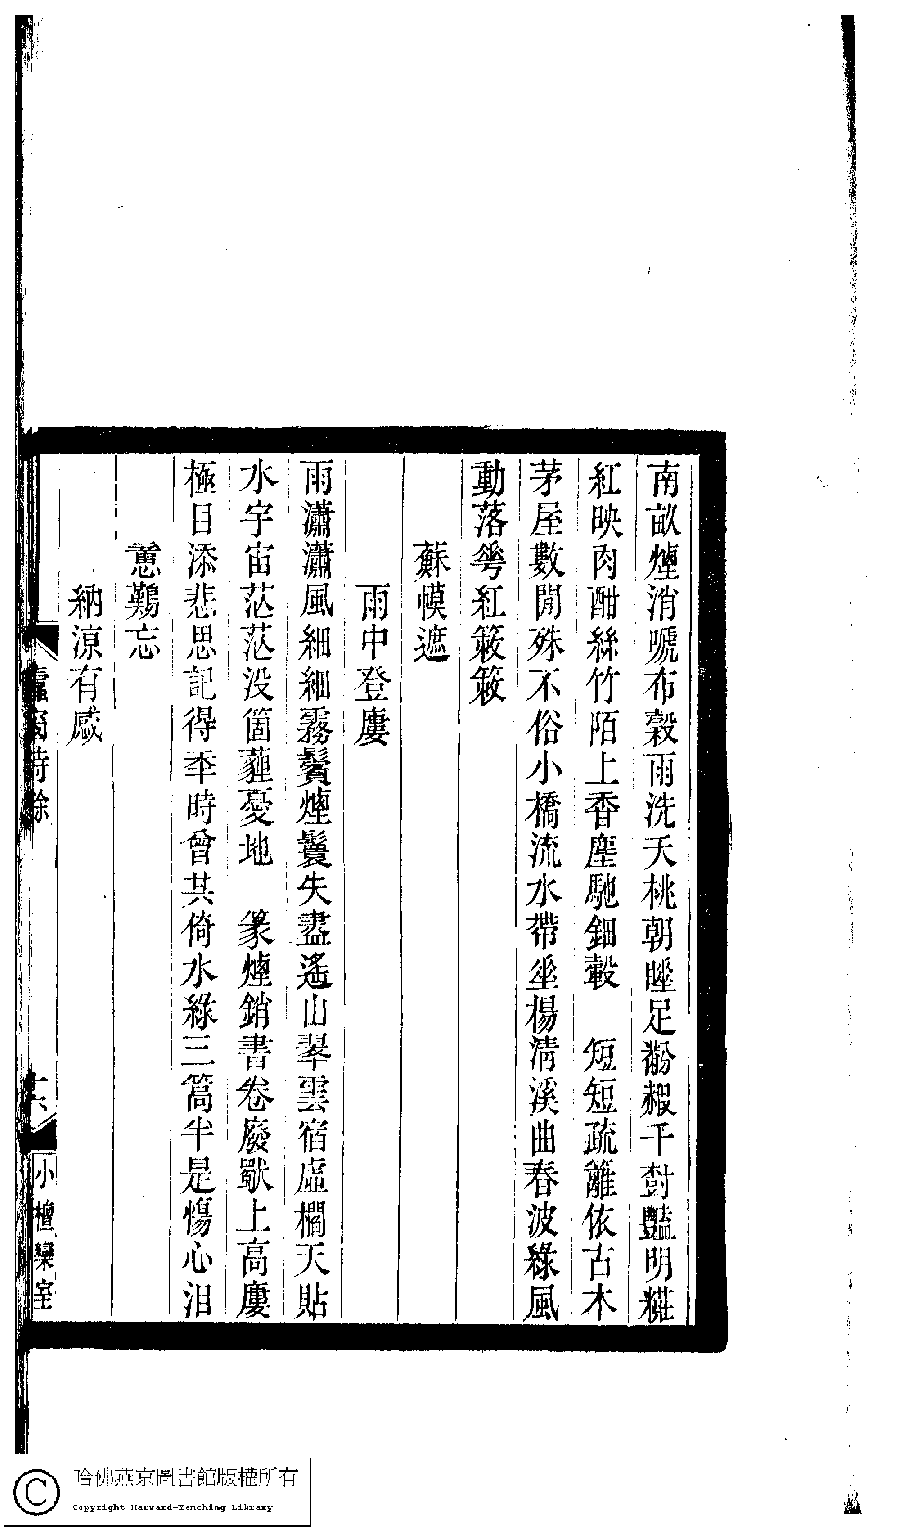 南畝煙消號布穀雨洗夭桃朝睡足粉糝千樹豔明糚
紅映肉酣絲竹陌上香塵馳鈿轂　短短疏籬依古木
茅屋數閒殊不俗小橋流水帶垂楊淸溪曲春波綠風
動落蕚紅簌簌
蘇幙遮
雨中登廔
雨瀟瀟風細細霧鬢煙鬟失盡遙山翠雲宿虛櫩天貼
水宇宙茫茫没箇薶憂地　篆煙銷書卷廢獸上高廔
極目添悲思記得秊時曾共倚水綠三篙半是慯心泪
惪鷬忘
納涼有感
詩餘
十六
小檀欒室
哈佛燕京圖書館版權所有
Copyright Harvard-Yenching Library